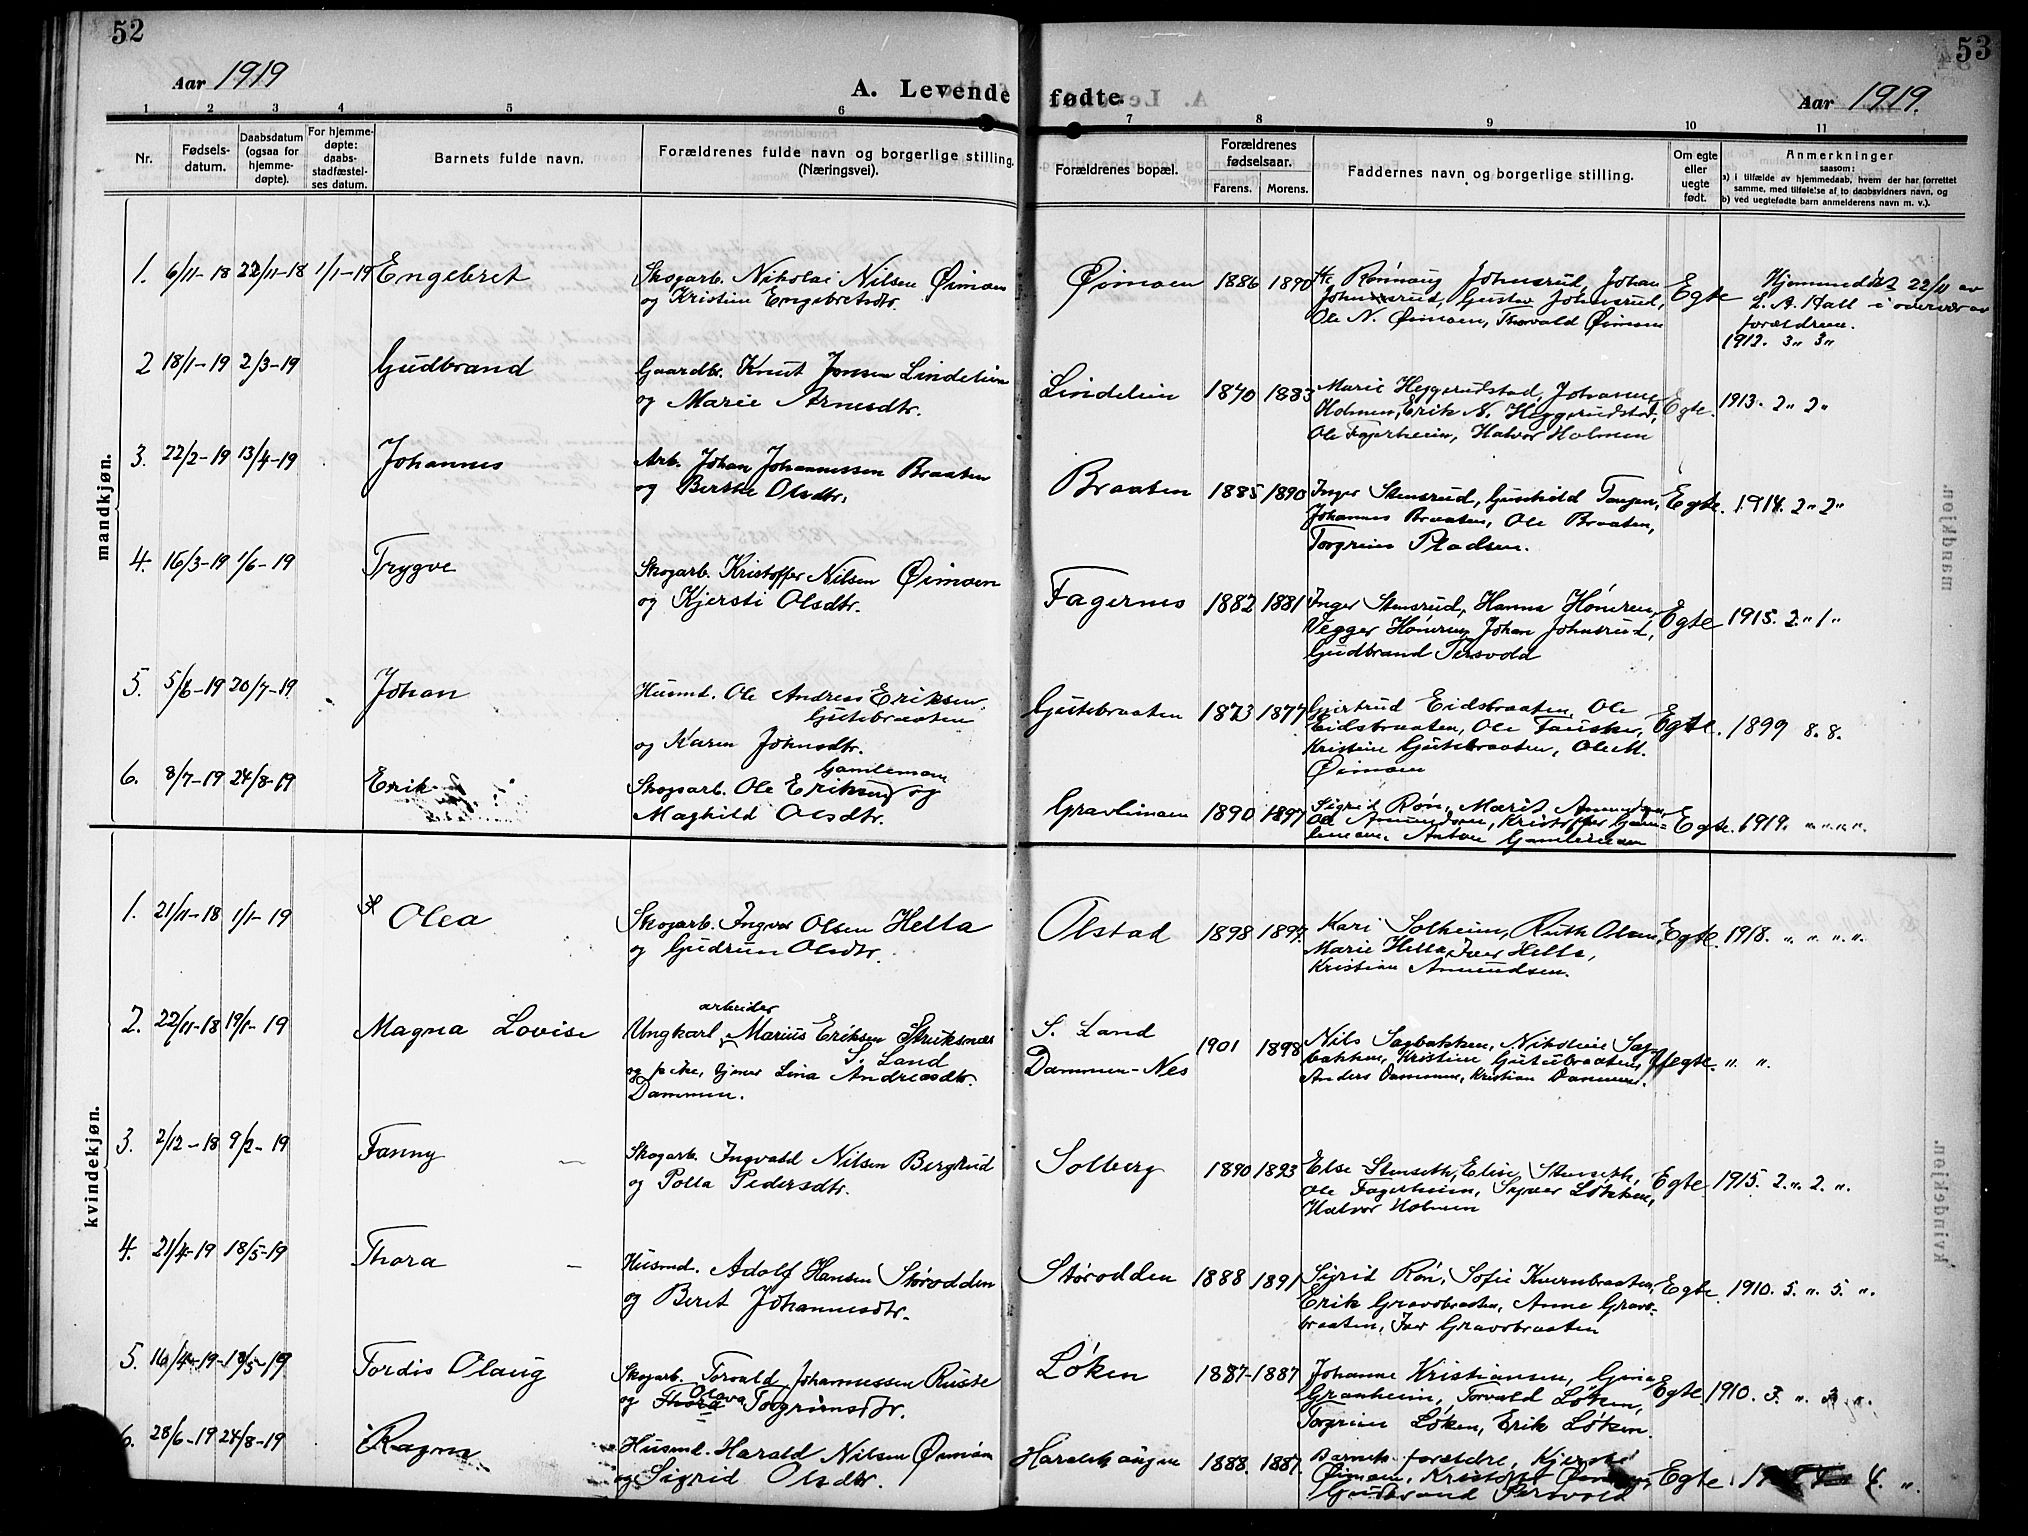 52
53
Aar 1919
A. Levende fødte.
Aar 1919.
1 2 3 4 5 6 7 8 9 10 11
Nr.
Fødsels-
datum.
Daabsdatum
(ogsaa for
hjemme-
døpte).
For hjemme-
døpte:
daabs-
stadfæstel-
ses datum.
Barnets fulde navn.
Forældrenes fulde navn og borgerlige stilling.
(Næringsvei).
Forældrenes bopæl.
Forældrenes
fødselsaar.
Farens. Morens.
Faddernes navn og borgerlige stilling.
Om egte
eller
uegte
født.
Anmerkninger
saasom:
a) i tilfælde av hjemmedaab, hvem der har forrettet
samme, med tilføielse af to daabsvidners navn, og
b) ved uegtefødte barn anmelderens navn m. v.).
mandkjøn.
1. 6/11-18 22/11-18 1/1-19 Engebret
Skogarb. Nikolai Nilsen Øimoen
og Kristine Engebretsdtr.
Øimoen 1886 1890
Rønnaug Johnsrud, Johan
Johnsrud, Gustav Johnsrud,
Ole N. Øimoen, Thorvald Øimoen
Egte
Hjemmedøbt 22/11 av
L. A. Hall i overvær av
forældrene.
1912. 3 „ 3 „
2 18/1-19 2/3-19 Gudbrand
Gaardbr. Knut Jonsen Lindelien
og Marie Arnesdtr.
Lindelien 1870 1883
Marie Heggerudstad, Johanne
Holmen, Erik N. Heggerudstad,
Ole Fagerheim, Halvor Holmen
Egte. 1913. 2 „ 2 „
3. 22/2-19 13/4-19 Johannes
Arb. Johan Johannessen Braaten
og Berthe Olsdtr.
Braaten 1885 1890
Inger Stensrud, Gunhild Tangen,
Johannes Braaten, Ole Braaten,
Torgrim Pladsen.
Egte. 1914. 2 „ 2 „
4. 16/3-19 1/6-19 Trygve
Skogarb. Kristoffer Nilsen Øimoen
og Kjersti Olsdtr.
Fagernes 1882 1881
Inger Stensrud, Hanna Hønerud,
Vegger Hønerud, Johan Johnsrud,
Gudbrand Persvold
Egte 1915. 2 „ 1 „
5. 5/6-19 20/7-19 Johan
Husmd. Ole Andreas Eriksen
Gutebraaten
og Karen Johnsdtr.
Gutebraaten 1873 1877
Gjertrud Eidsbraaten, Ole
Eidsbraaten, Ole
Kristine Gutebraaten, Ole M.
Øimoen
Egte. 1899 8. 8.
6. 8/7-19 24/8-19 Erik
Gamlemoen
Skogarb. Ole Eriksen og
Maghild Olsdtr.
Gravlimoen 1890 1897
Sigrid Røn, Marit Amundsen,
Ole Amundsen, Kristoffer Gam-
lemoen, Anton Gamlemoen
Egte. 1919. „ „ „ „
kvindekjøn.
1. 21/11-18 1/1-19 Olea
Skogarb. Ingvar Olsen Hella
og Gudrun Olsdtr.
Olstad 1898 1897.
Kari Solheim, Ruth Olsen,
Marie Hella, Iver Hella,
Kristian Amundsen.
Egte. 1918. „ „ „ „
2. 22/11-18 19/1-19 Magna Lovise
arbeider
Ungkarl Marius Eriksen Struksnæs
S. Land
og pike, tjener Lina Andreasdtr.
Dammen.
S. Land
Dammen-Nes
1901 1898
Nils Sagbakken, Nikoline Sag-
bakken, Kristine Gutubraaten,
Anders Dammen, Kristian Dammen.
Uegte. „ „
3. 2/12-18 9/2-19 Fanny
Skogarb. Ingvald Nilsen Bergsrud
og Polla Pedersdtr.
Solberg 1890 1893
Else Stenseth, Eline Stenseth,
Ole Fagerheim, Syver Løkken,
Halvor Holmen
Egte 1915. 2. „ 2. „
4. 21/4-19 18/5-19 Thora
Husmd. Adolf Hansen Størodden
og Beret Johannesdtr.
Størodden 1888 1891
Sigrid Røn, Sofie Kvernbraaten,
Erik Gravsbraaten, Anne Gravs-
braaten, Iver Gravsbraaten
Egte. 1910. 5. „ 5. „
5. 16/4-19 18/5-19 Tordis Olaug
Skogarb. Torvald Johannessen Ruste
og Thora Olava Torgrimsdtr.
Løken 1887-1887
Johanne Kristiansen, Gina
Granheim, Torvald Løken,
Torgrim Løken, Erik Løken.
Egte 1910. 3. „ 3. „
6. 28/6-19 24/8-19 Ragna
Husmd. Harald Nilsen Øimoen
og Sigrid Olsdtr.
Haraldshaugen 1888. 1887.
Barnets forældre, Kjersti
Øimoen, Kristoffer Øimoen,
Gudbrand Persvold
Egte. 4. „